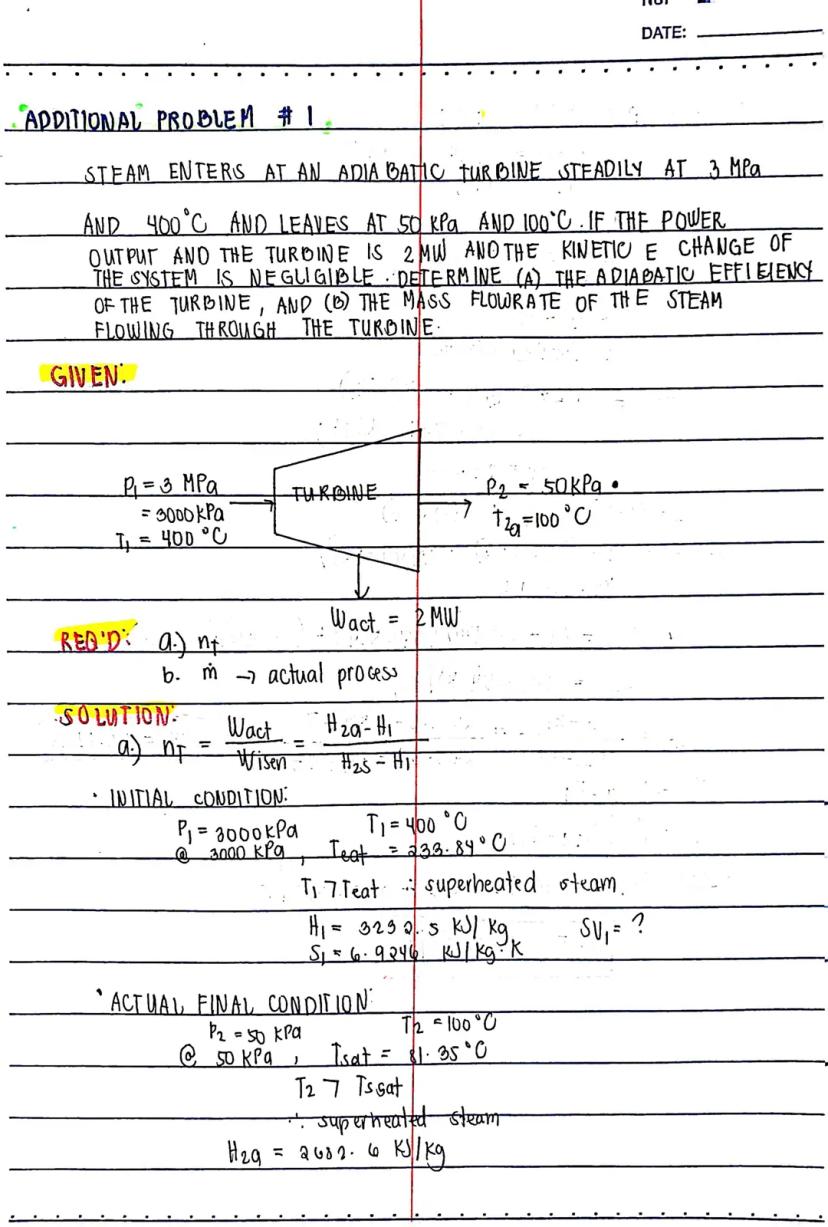 DATE:
ADDITIONAL PROBLEM # 1
STEAM ENTERS AT AN ADIABATIC TURBINE STEADILY AT 3 MPa
AND 400°C AND LEAVES AT 50 kPa AND 100°C. IF THE POWER
OUTPUT AND THE TURBINE IS 2 MW AND THE KINETIC E CHANGE OF
THE SYSTEM IS NEGLIGIBLE. DETERMINE (A) THE ADIABATIC EFFICIENCY
OF THE TURBINE, AND (B) THE MASS FLOWRATE OF THE STEAM
FLOWING THROUGH THE TURBINE.
GIVEN:
P₁ = 3 MPa
= 3000 kPa
T₁ = 400 °C
TURBINE
P₂ = 50 kPa
T₂a = 100 °C
Wact. = 2 MW
REQ'D: a.) nT
b. ṁ → actual process
SOLUTION:
a.) nT = Wact / Wisen = H₂a - H₁ / H₂s - H₁
• INITIAL CONDITION:
P₁ = 3000 kPa T₁ = 400 °C
@ 3000 kPa, Tsat = 233.84 °C
T₁ > Tsat ∴ superheated steam.
H₁ = 3232.5 KJ/kg SV₁ = ?
S₁ = 6.9246 KJ/kg·K
• ACTUAL FINAL CONDITION:
P₂ = 50 kPa T₂ = 100 °C
@ 50 kPa, Tsat = 81.35 °C
T₂ > Tssat
∴ superheated steam
H₂a = 2682.6 KJ/kg